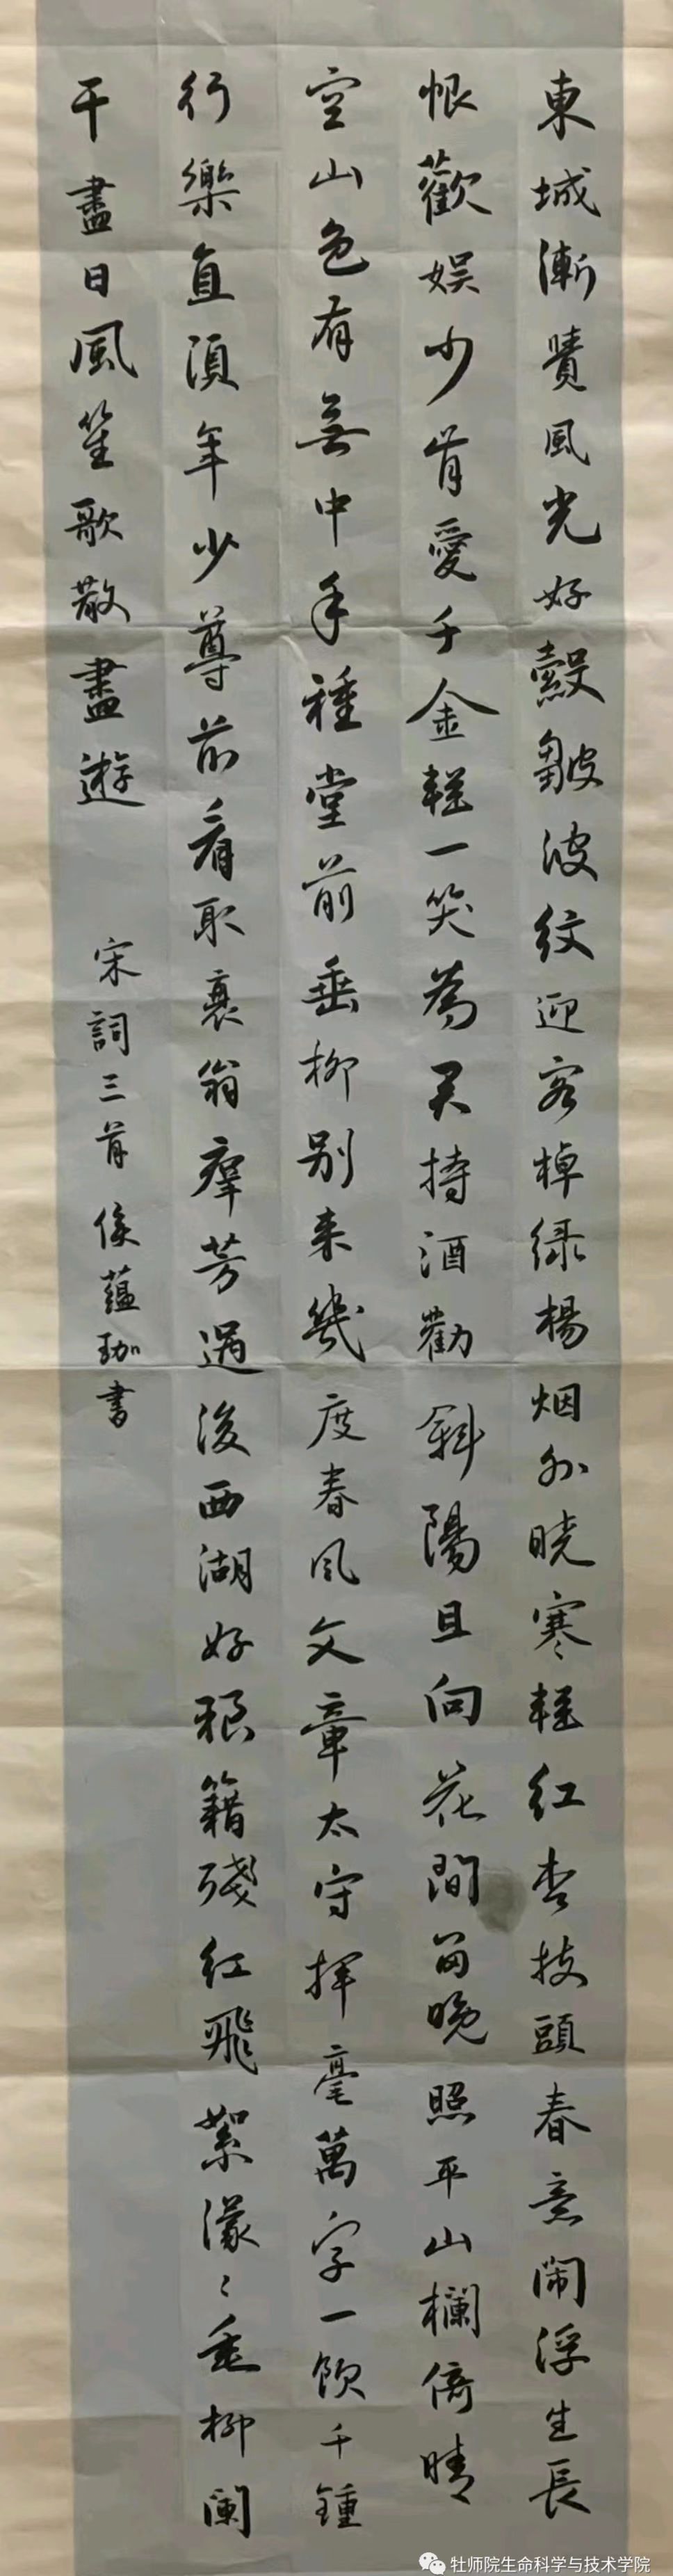 東城漸覺風光好縠皺波紋迎客棹绿楊烟外晓寒輕红杏枝頭春意闹浮生長
恨歡娱少肯愛千金輕一笑為君持酒勸斜陽且向花間留晚照平山欄倚晴
空山色有無中手種堂前垂柳别来幾度春風文章太守揮毫萬字一飲千鍾
行樂直須年少尊前看取衰翁羣芳過後西湖好狼籍殘红飛絮濛々垂柳阑
干盡日風笙歌散盡遊 宋詞三首 侯蘊珈書
牡师院生命科学与技术学院